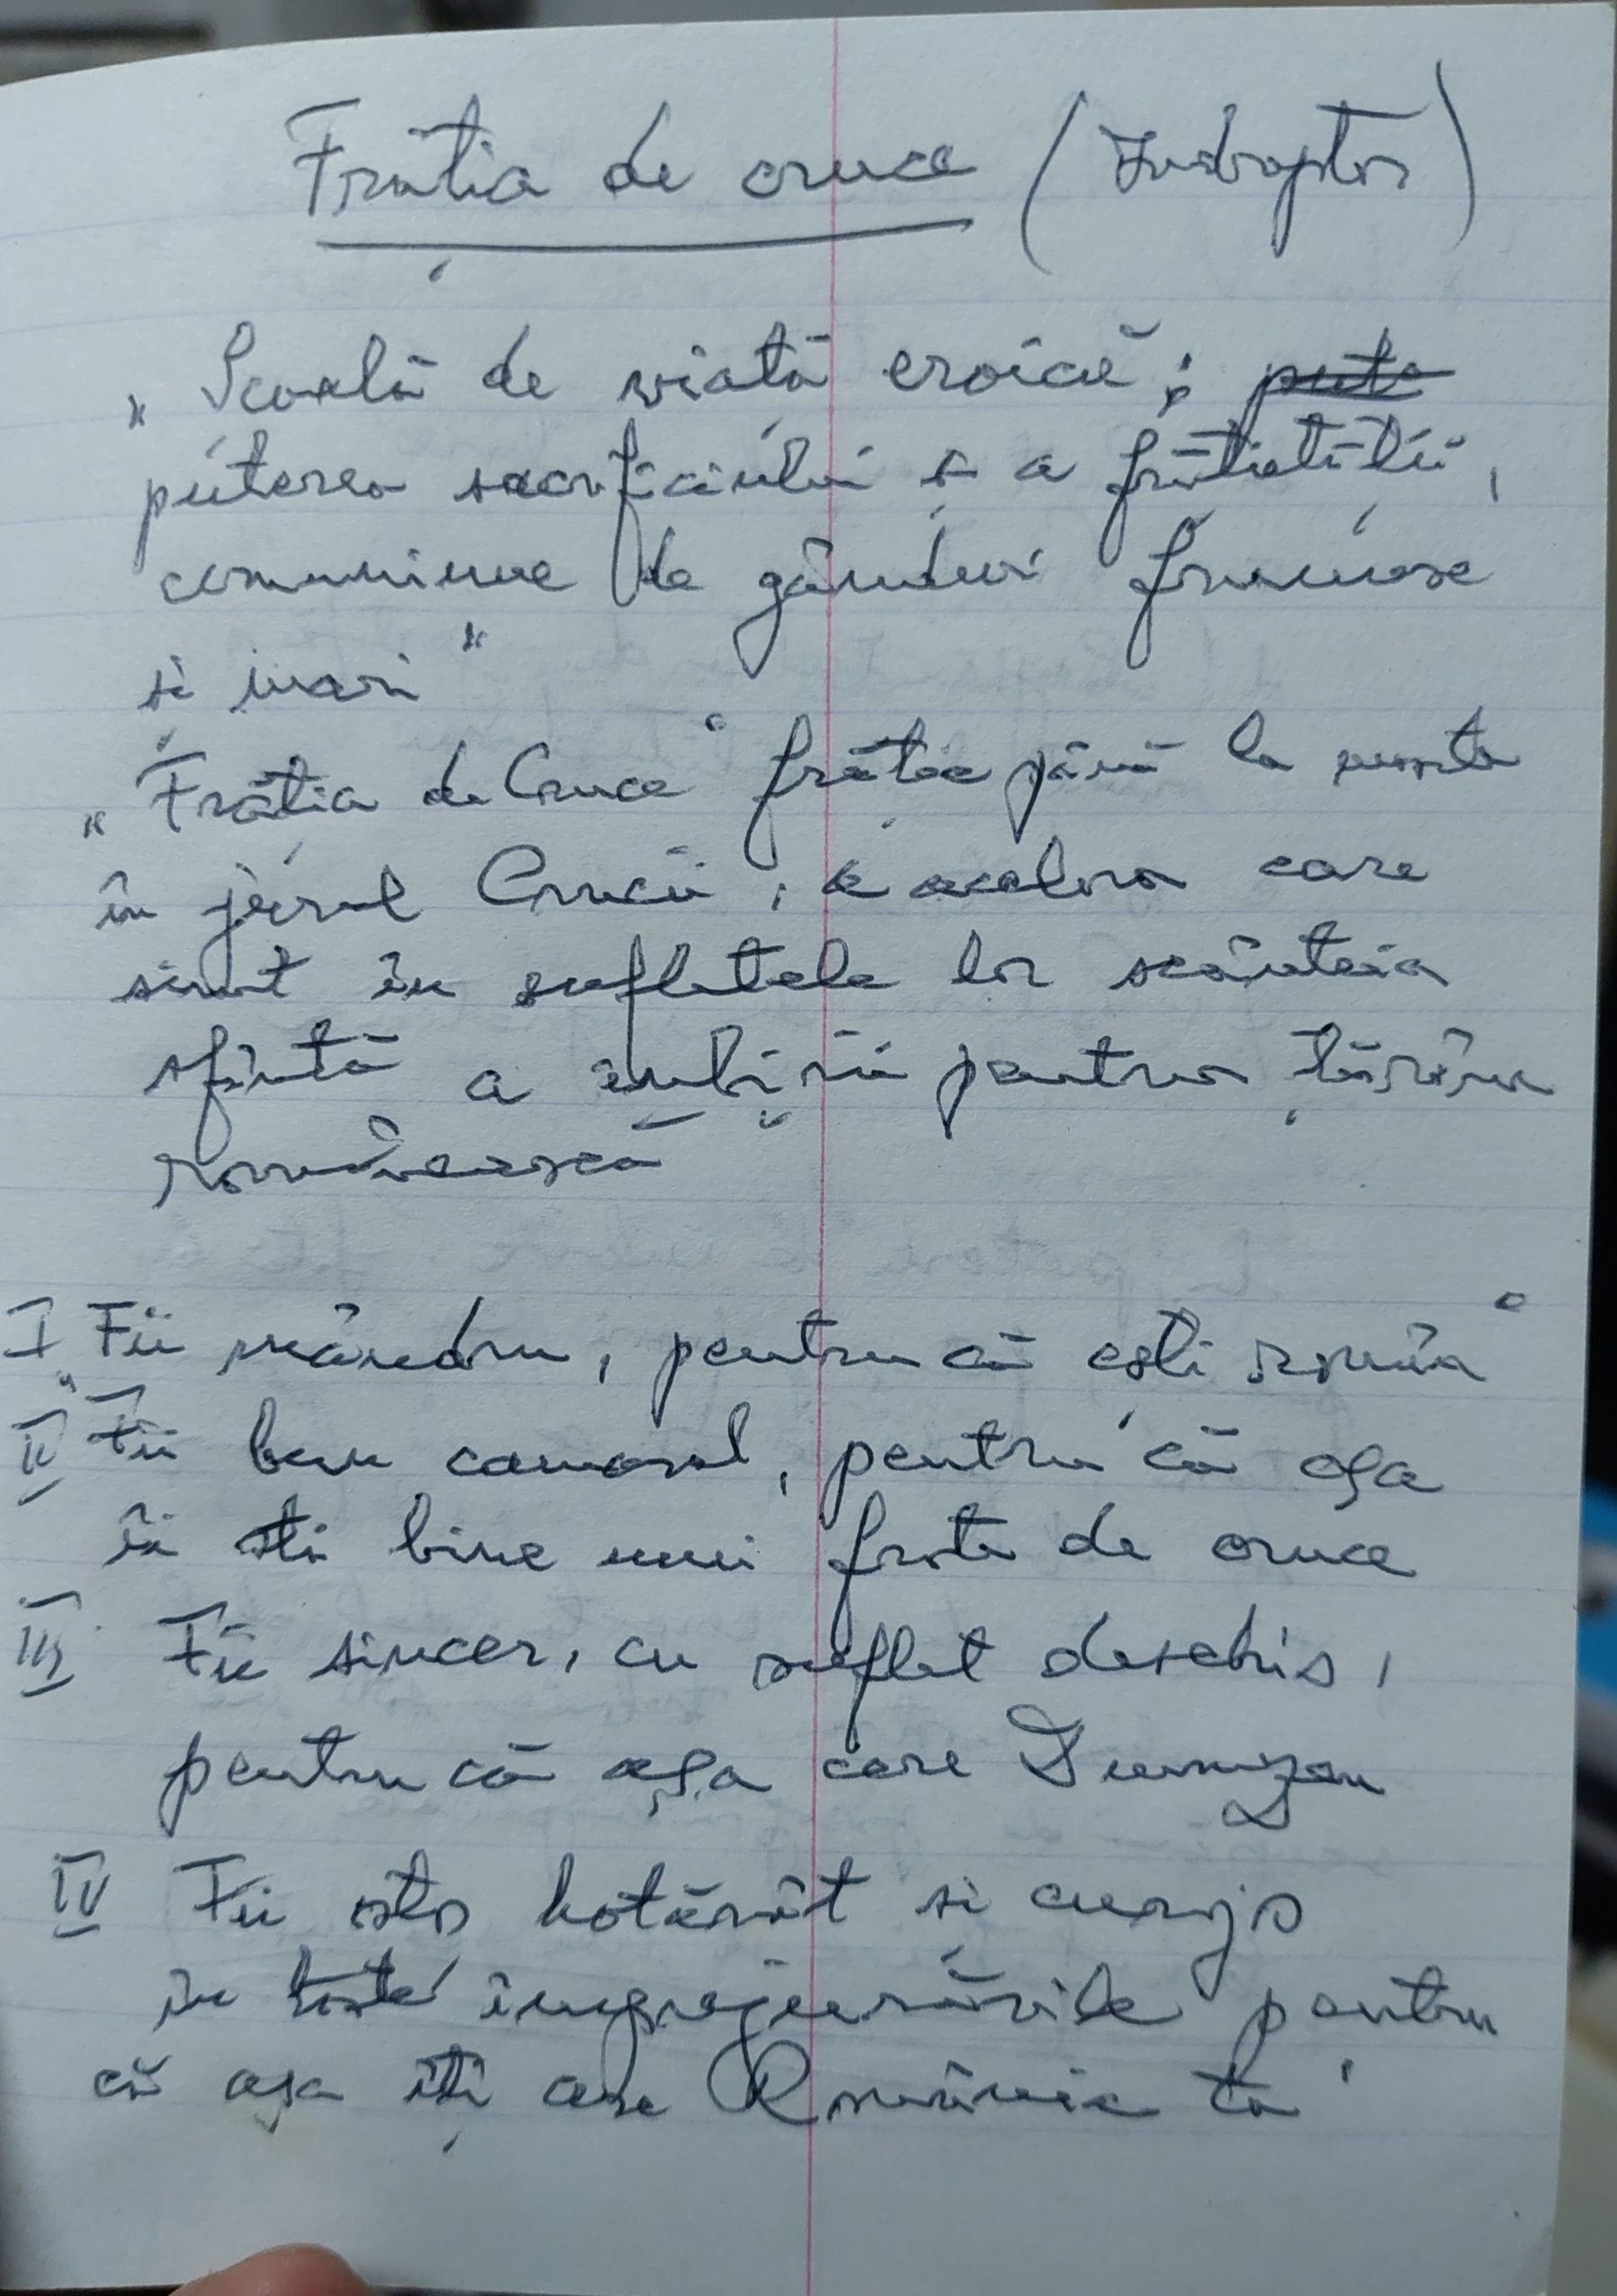 Frăția de cruce (Îndreptar)
„Școală de viață eroică; pute
puterea sacrificiului și a frățietății,
comuniune de gânduri frumoase
și mari"
„Frăția de Cruce" frăție până la moarte
în jurul Crucii, a acelora care
simt în sufletele lor scânteia
sfântă a iubirii pentru țărâna
românească
I „Fii mândru, pentru că ești român"
II Fii bun camarad, pentru că așa
îi stă bine unui frate de cruce
III Fii sincer, cu suflet deschis,
pentru că așa cere Dumnezeu
IV Fii hotărât și curajos
în toate împrejurările pentru
că așa îți cere România ta